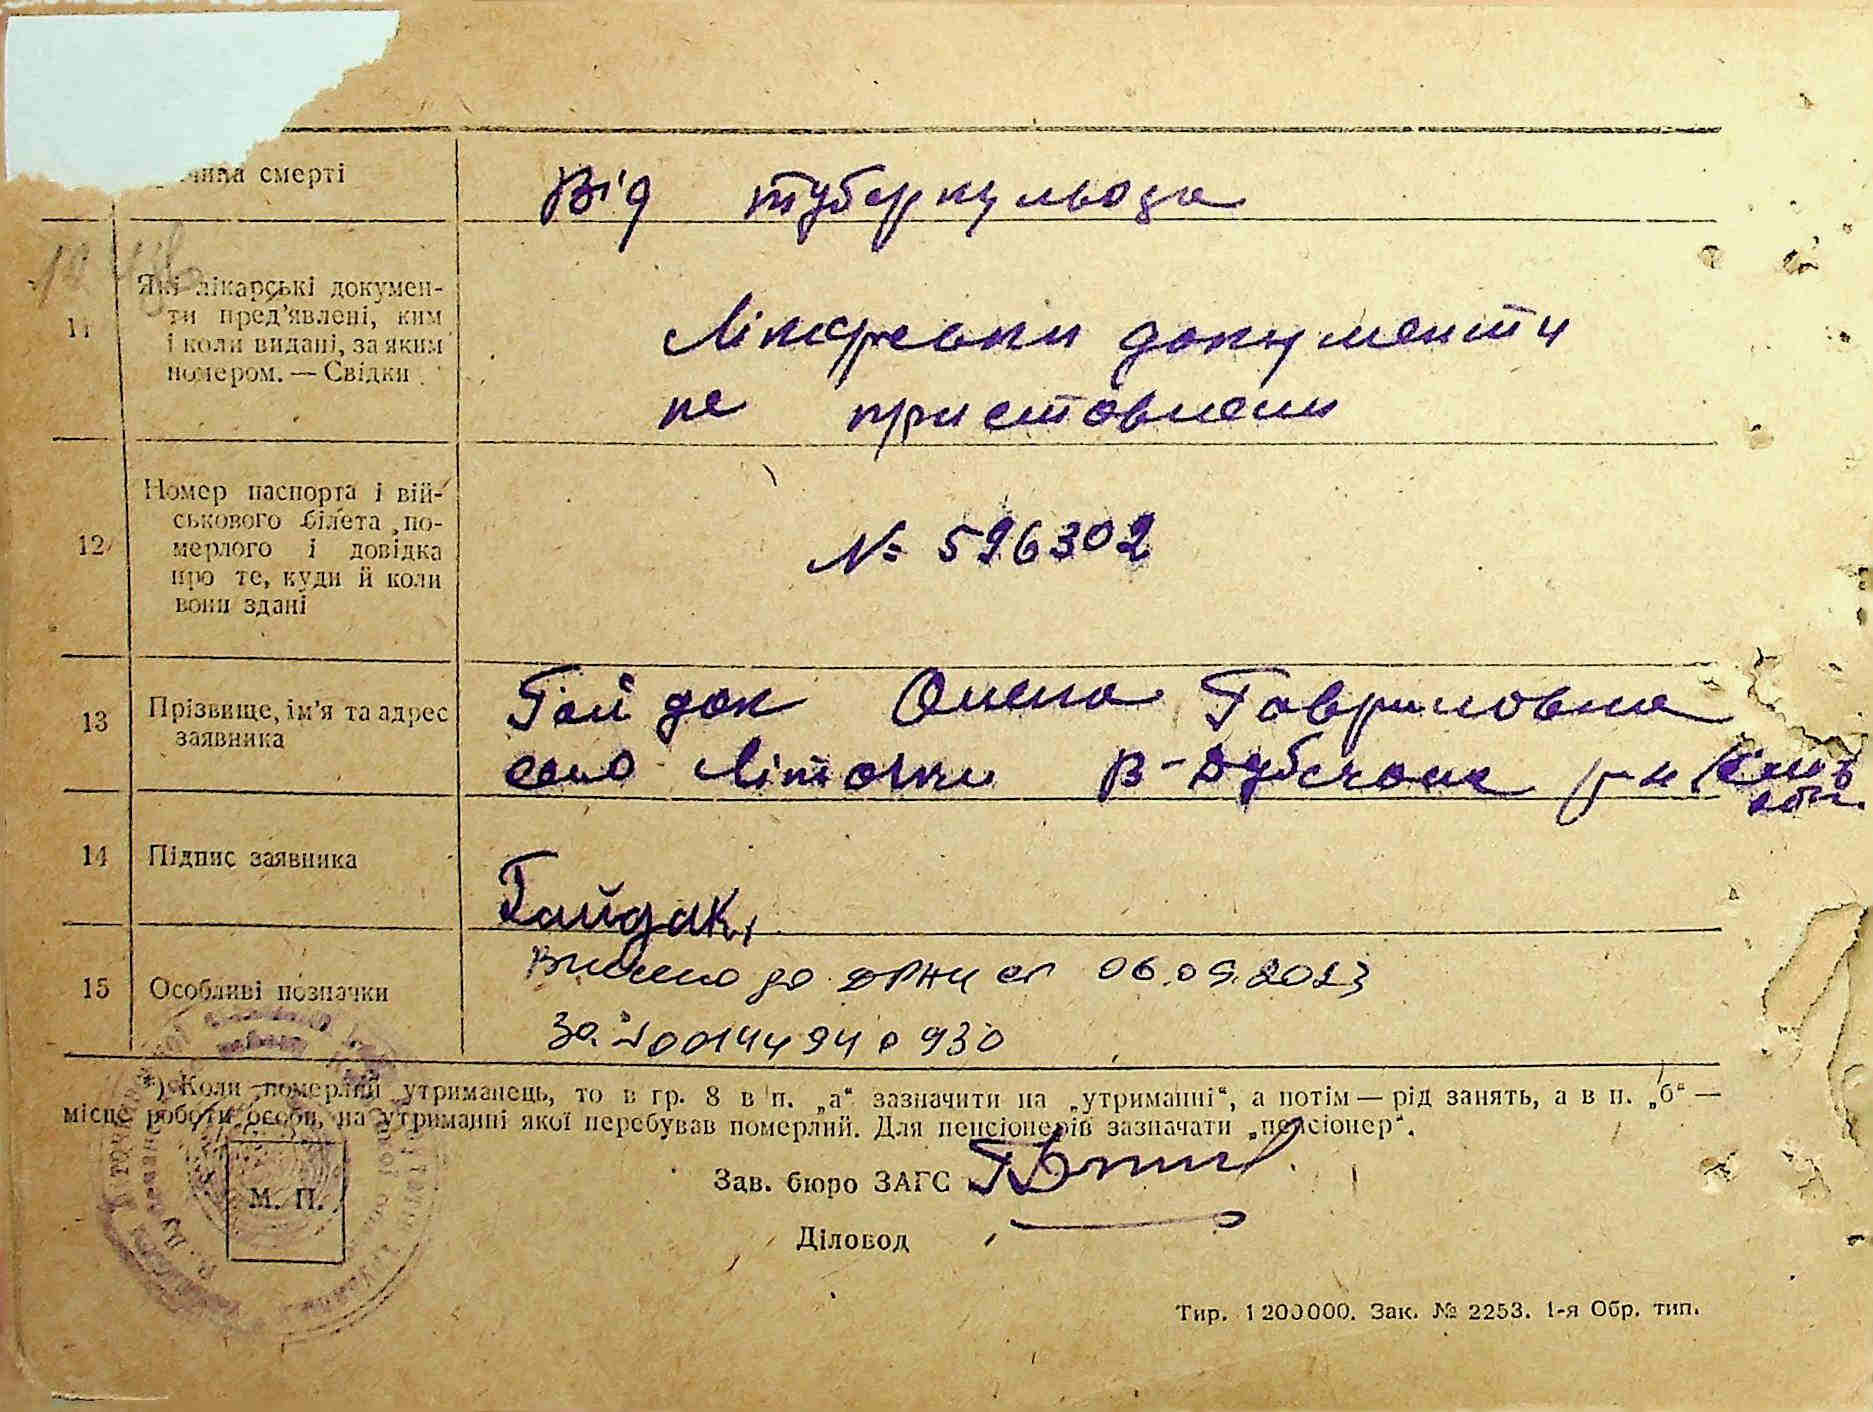 чина смерті
Від туберкульоза
11
Які лікарські докумен-
ти пред'явлені, ким
і коли видані, за яким
номером. — Свідки
Лікарськи документи
не приставлени
12
Номер паспорта і вій-
ськового білета по-
мерлого і довідка
про те, куди й коли
вони здані
№ 596302
13
Прізвище, ім'я та адрес
заявника
Гайдак Олена Гавриловна
село Літочки В-Дубечане р-н Київ
обл.
14
Підпис заявника
Гайдак
15
Особливі позначки
Внесено до ДРАЦСГ 06.09.2023
за № 00144940930
*) Коли померлий утриманець, то в гр. 8 в п. „а“ зазначити на „утриманні“, а потім — рід занять, а в п. „б“ —
місце роботи особи, на утриманні якої перебував померлий. Для пенсіонерів зазначати „пенсіонер“.
М. П.
Зав. бюро ЗАГС
Діловод
Тир. 1200000. Зак. № 2253. 1-я Обр. тип.